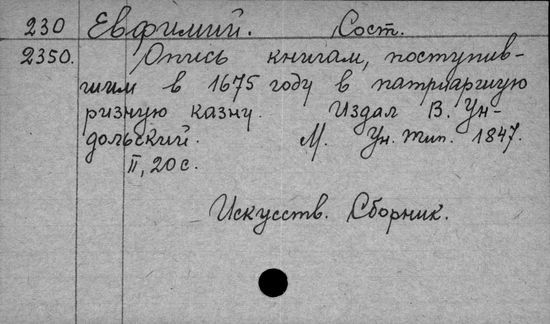 230 Евфимий. Сост.
2350. Опись книгам, поступив-
шим в 1675 году в патриаршую
ризную казну. Издал В. Ун-
дольский. М. Ун. тип. 1847.
II, 20 с.
Искусств. Сборник.